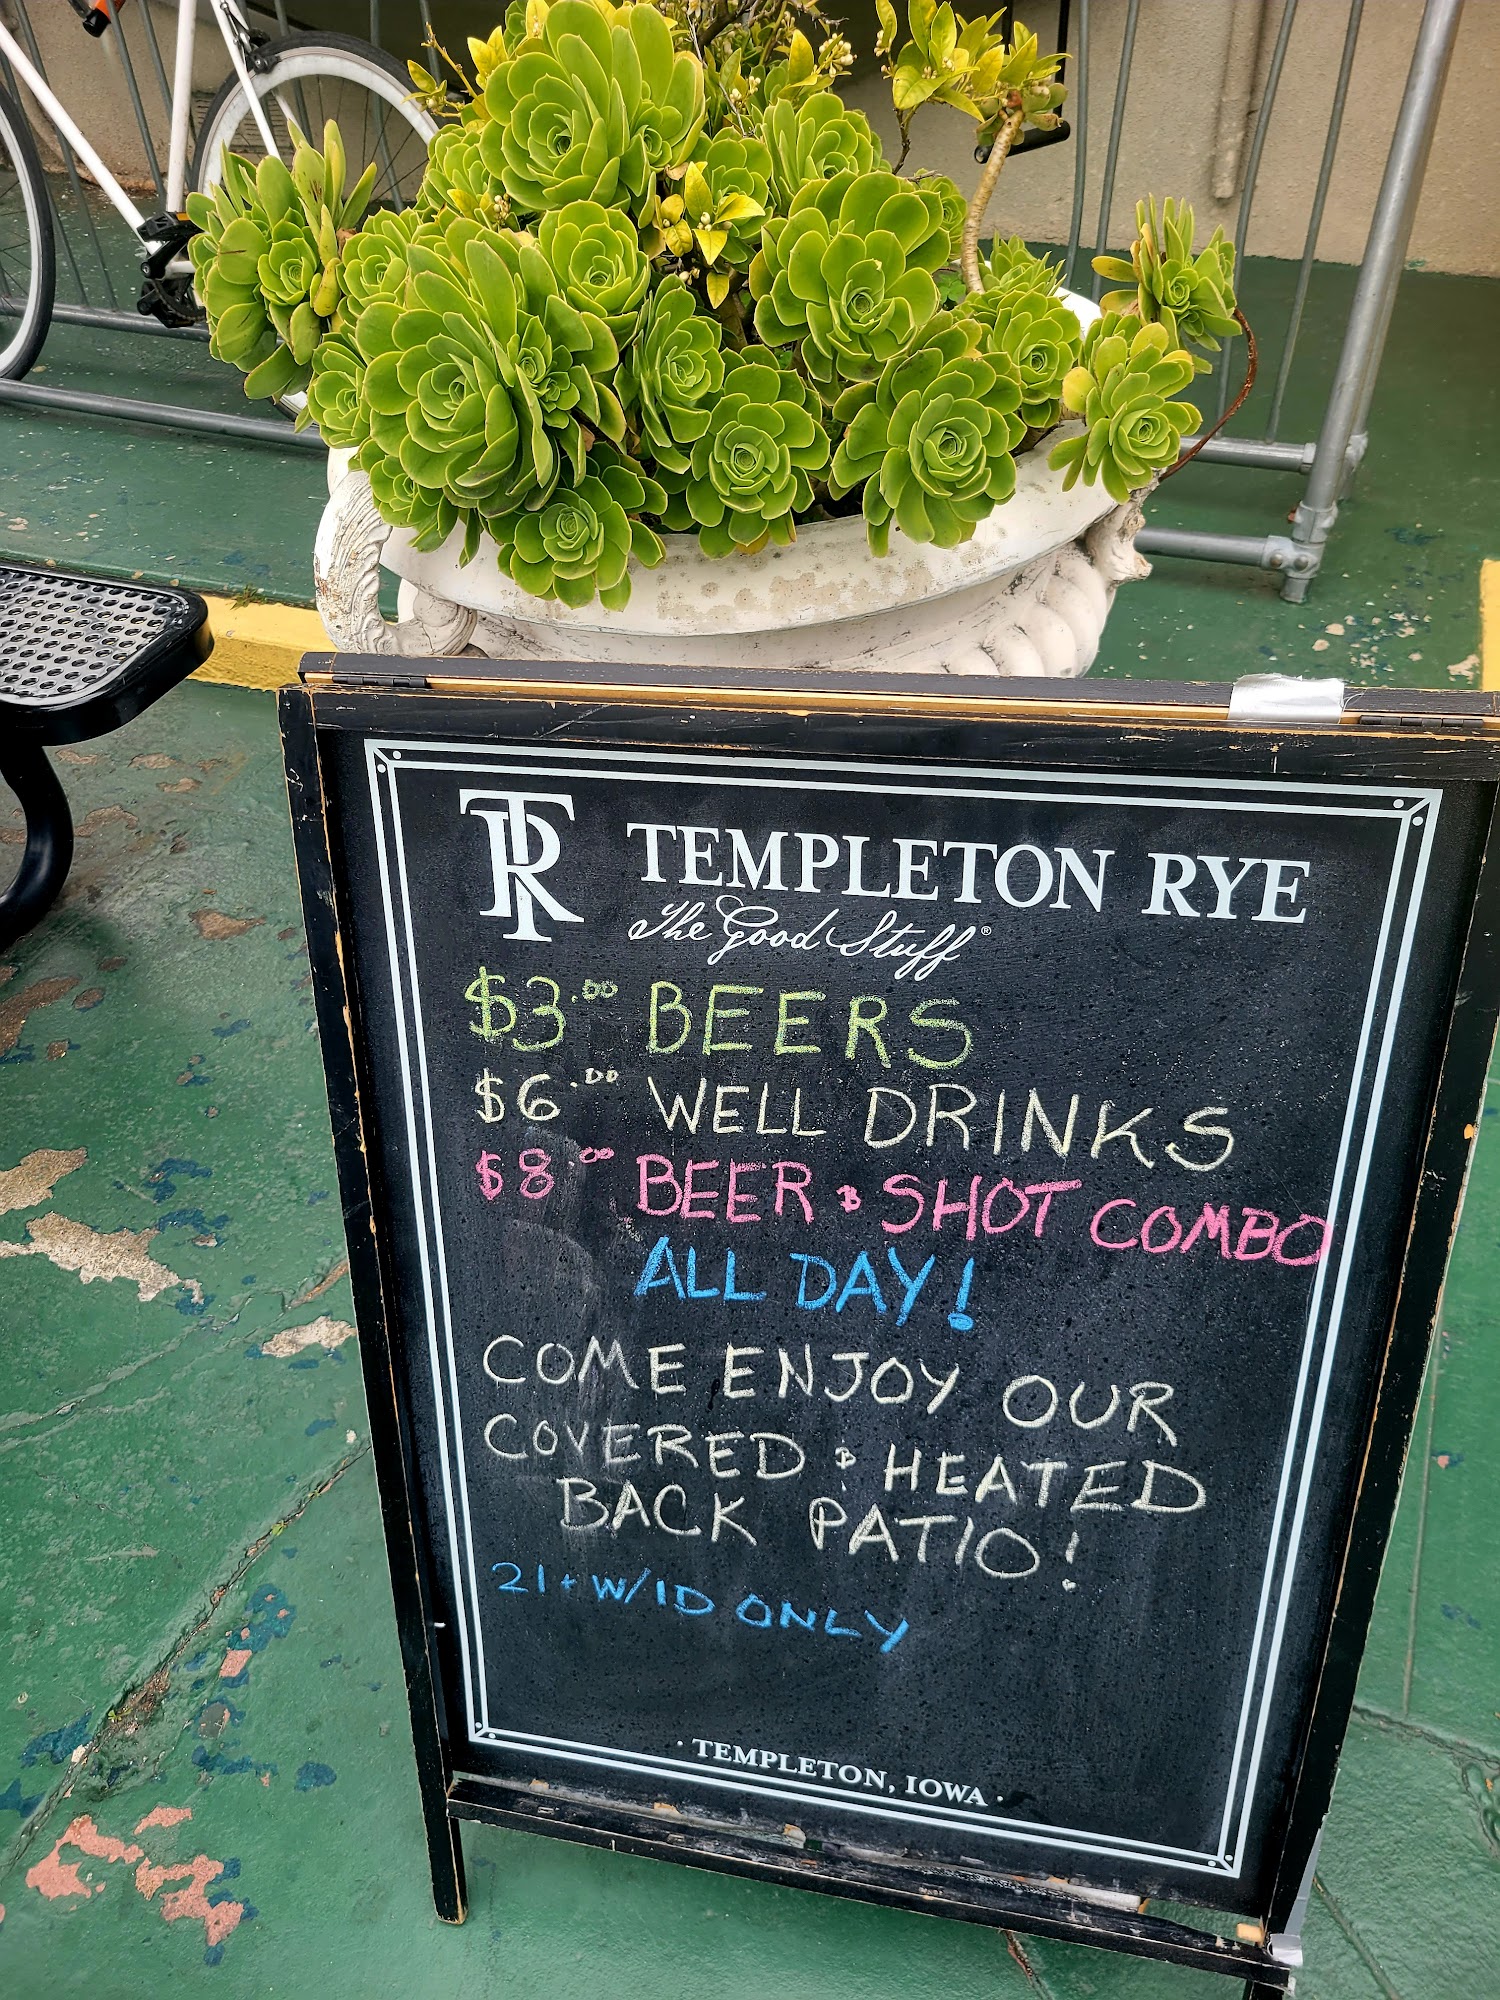 TR TEMPLETON RYE
The Good Stuff®
$3.00 BEERS
$6.00 WELL DRINKS
$8.00 BEER & SHOT COMBO
ALL DAY!
COME ENJOY OUR
COVERED & HEATED
BACK PATIO!
21+ W/ID ONLY
· TEMPLETON, IOWA ·